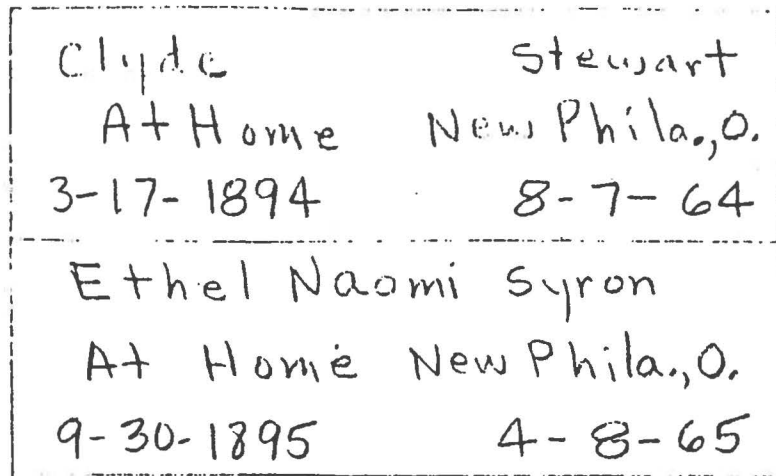 Clyde Stewart
At Home New Phila., O.
3-17-1894 8-7-64
Ethel Naomi Syron
At Home New Phila., O.
9-30-1895 4-8-65